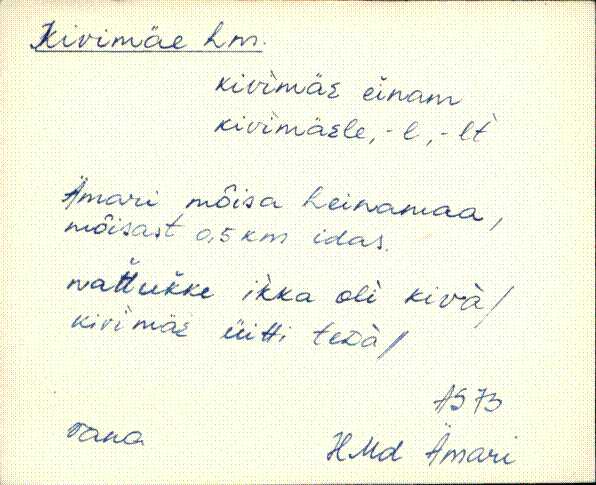 Kivimäe hm.
kivìmäᴇ einam
kivìmäᴇle, -l, -lt
Ämari mõisa heinamaa,
mõisast 0,5 km idas.
nattukke ikka olì kivà/
kivìmäᴇ üitti tedà/
AS 73
vana
HMd Ämari